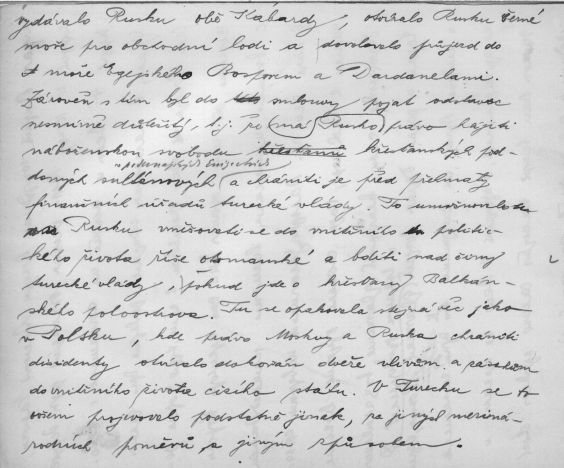 vydávalo Rusku obě Kabardy, otvíralo Rusku Černé
moře pro obchodní lodi a dovolovalo průjezd do
moře Egejského Bosporem a Dardanelami.
Zároveň s tím byl do smlouvy pojat odstavec
nesmírně důležitý, t.j. že má Rusko právo hájiti
náboženskou svobodu křesťanských pod-
v podunajských knížectvích
daných sultánových a chrániti je před
finančních úřadů turecké vlády. To umožňovalo
Rusku vměšovati se do vnitřního politic-
kého života říše otomanské a bdíti nad činy
turecké vlády, pokud jde o křesťany Balkán-
ského poloostrova. Tu se opakovala stejná věc jako
v Polsku, kde právo Moskvy a Ruska chrániti
disidenty otvíralo dokořán dveře vlivům a zásahům
do vnitřního života cizího státu. V Turecku se to
ovšem projevovalo podstatně jinak, za jiných meziná-
rodních poměrů a jiným způsobem.